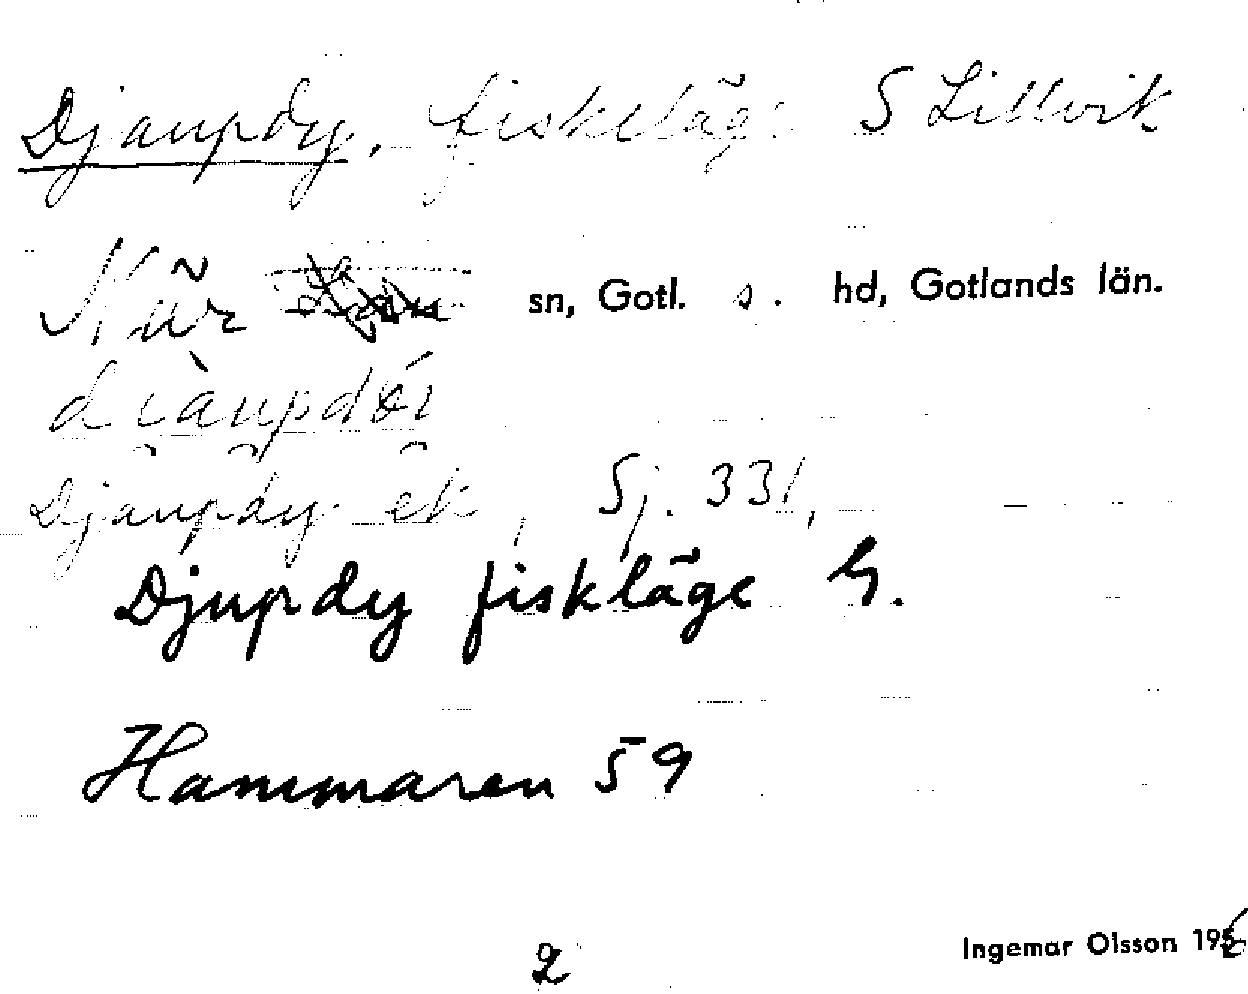 Djaupdy, fiskeläge S Lillvik
När sn, Gotl. s. hd, Gotlands län.
Djaupdy ek, Sj. 331,
Djupdy fiskläge G.
Hammaren 59
2 Ingemar Olsson 195